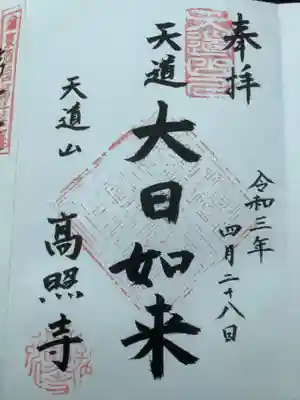 奉拝
令和三年
四月二十八日
天道
大日如来
天道山
高照寺